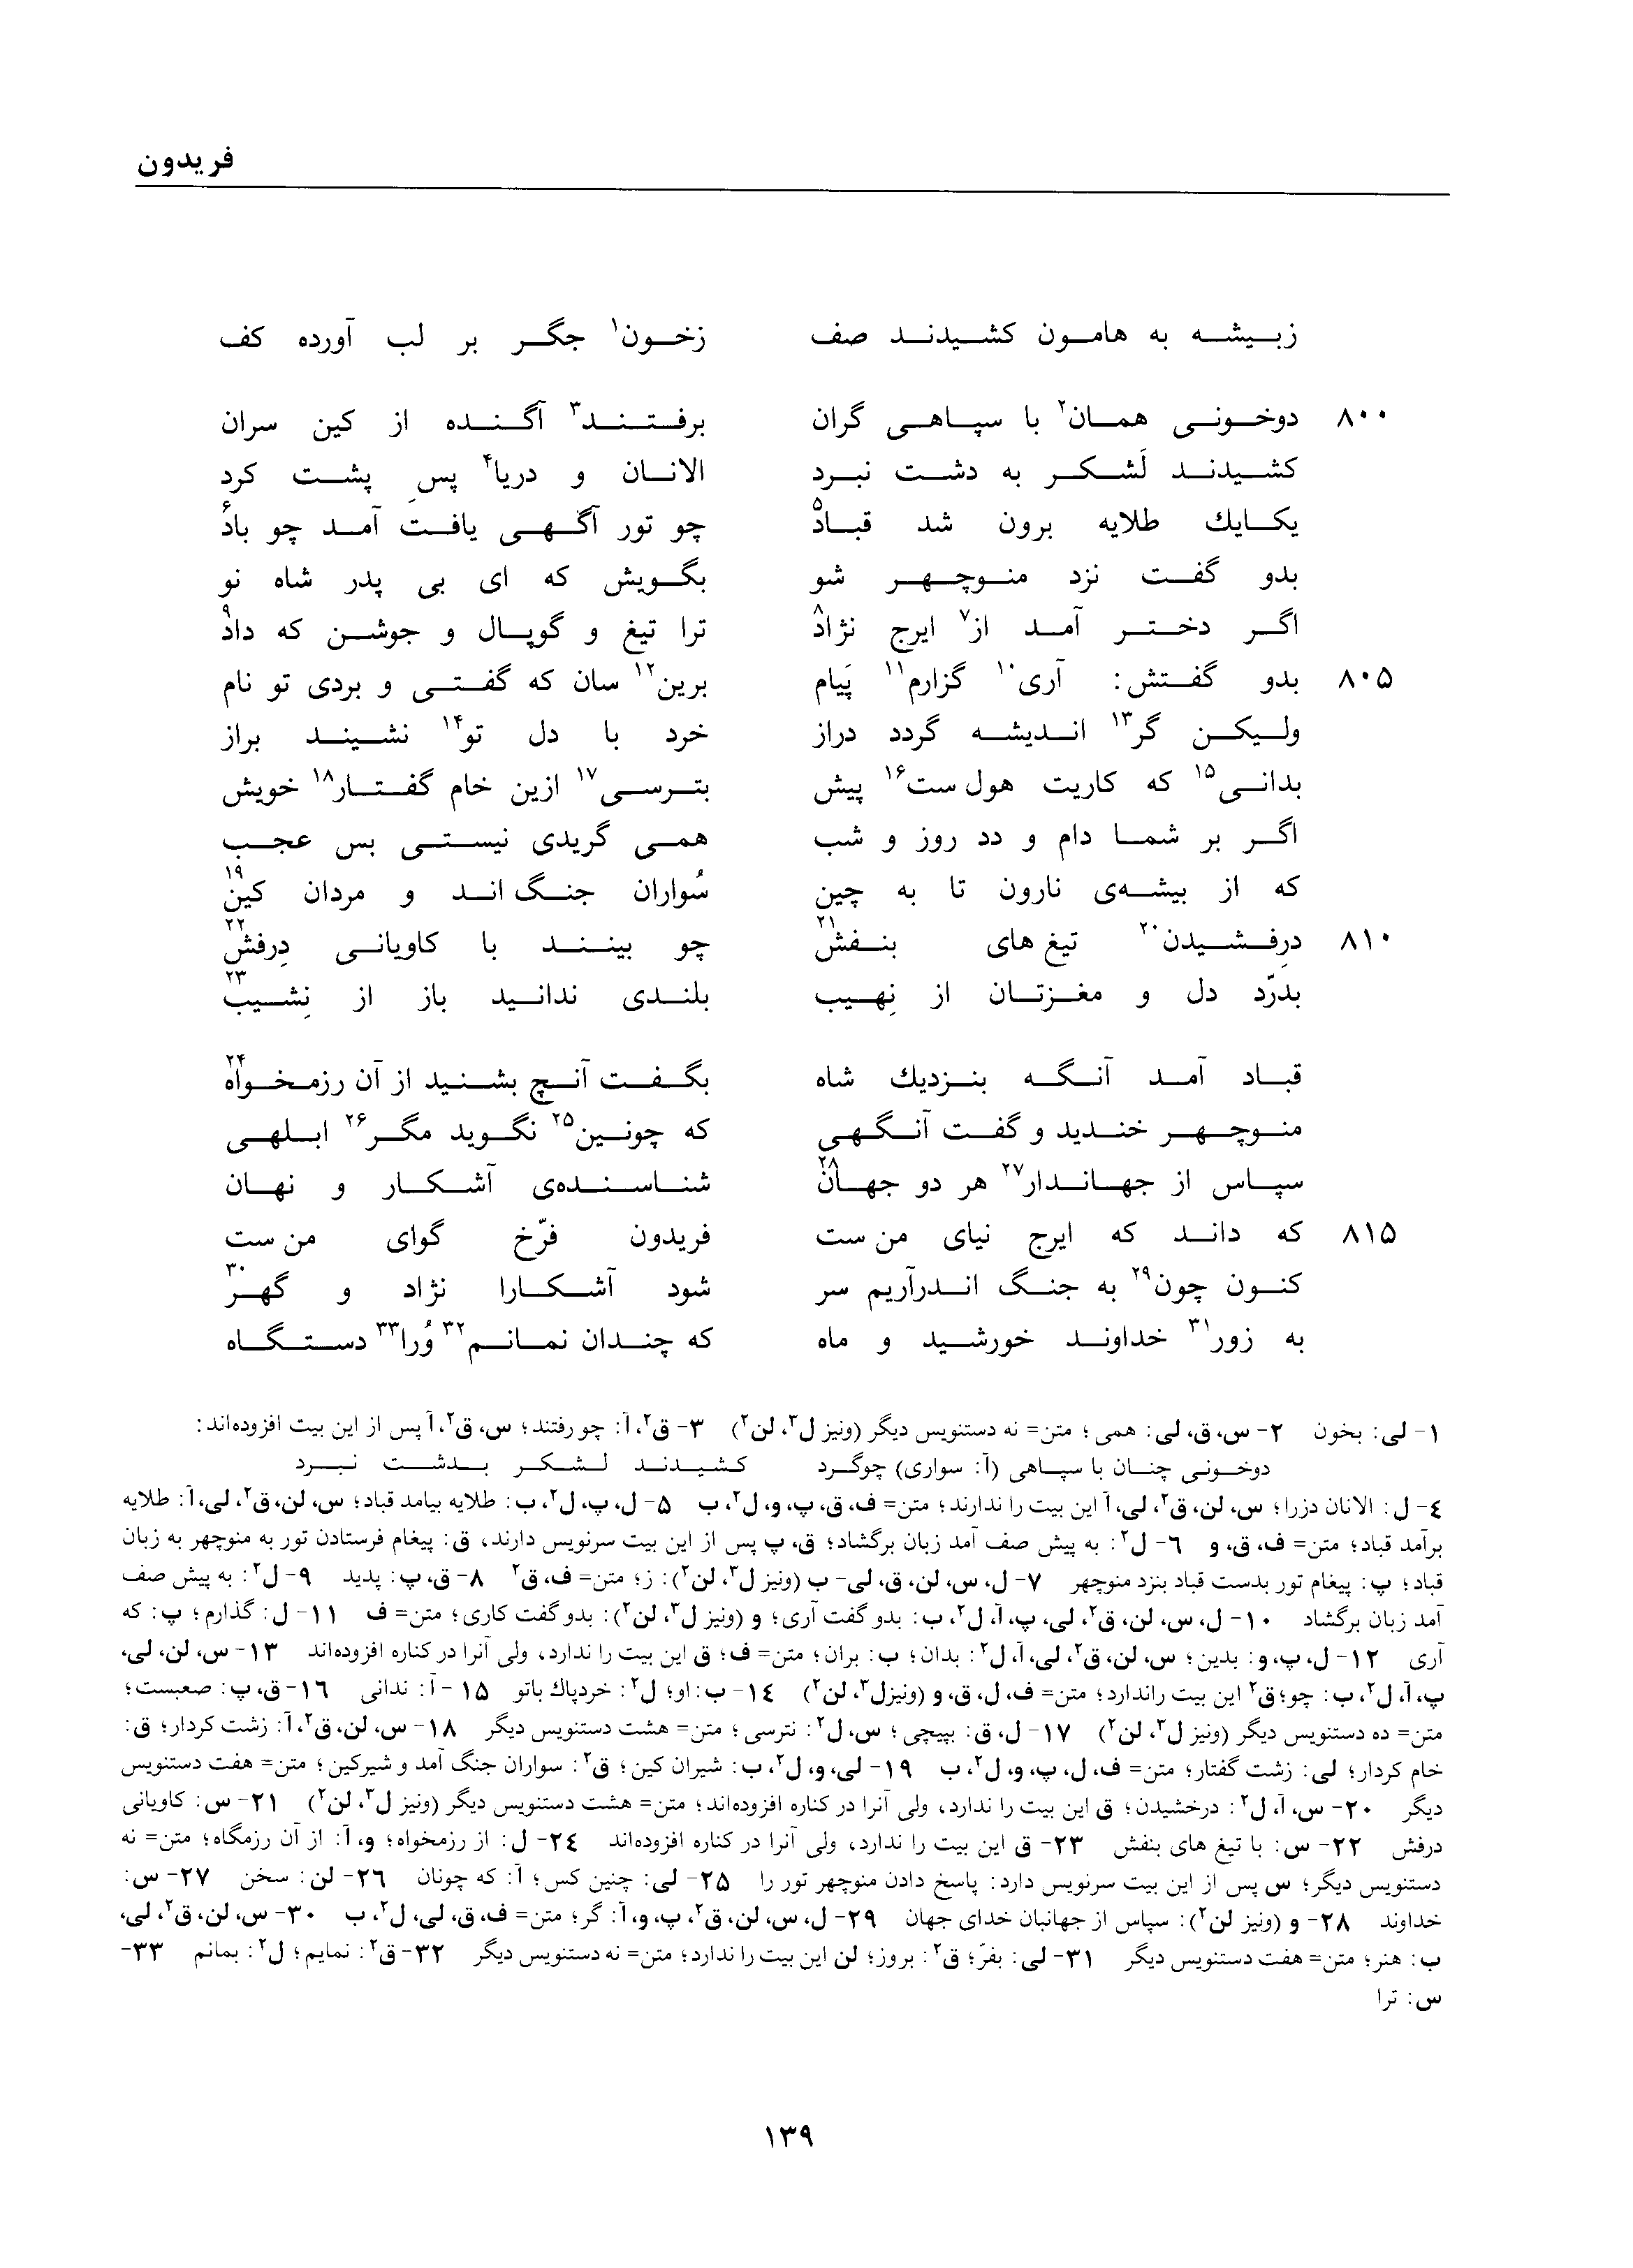 فریدون
زبیشه به هامون کشیدند صف زخون۱ جگر بر لب آورده کف
۸۰۰ دوخونی همان۲ با سپاهی گران برفتند۳ آگنده از کین سران
کشیدند لَشکر به دشت نبرد الانان و دریا۴ پسِ پشت کرد
یکایك طلایه برون شد قباد۵ چو تور آگهی یافت آمد چو باد۶
بدو گفت نزد منوچهر شو بگویش که ای بی پدر شاه نو
اگر دختر آمد از۷ ایرج نژاد۸ ترا تیغ و گوپال و جوشن که داد۹
۸۰۵ بدو گفتش: آری۱۰ گزارم۱۱ پَیام برین۱۲ سان که گفتی و بردی تو نام
ولیکن گر۱۳ اندیشه گردد دراز خرد با دل تو۱۴ نشیند براز
بدانی۱۵ که کاریت هول ست۱۶ پیش بترسی۱۷ ازین خام گفتار۱۸ خویش
اگر بر شما دام و دد روز و شب همی گریدی نیستی بس عجب
که از بیشه‌ی نارون تا به چین سُواران جنگ اند و مردان کین۱۹
۸۱۰ دِرفشیدن۲۰ تیغ های بنفش۲۱ چو بینند با کاویانی دِرفش۲۲
بدرّد دل و مغزتان از نِهیب بلندی ندانید باز از نِشیب۲۳
قباد آمد آنگه بنزدیك شاه بگفت آنچ بشنید از آن رزمخواه۲۴
منوچهر خندید و گفت آنگهی که چونین۲۵ نگوید مگر۲۶ ابلهی
سپاس از جهاندار۲۷ هر دو جهان۲۸ شناسنده‌ی آشکار و نهان
۸۱۵ که داند که ایرج نیای من ست فریدون فرّخ گوای من ست
کنون چون۲۹ به جنگ اندرآریم سر شود آشکارا نژاد و گهر۳۰
به زور۳۱ خداوند خورشید و ماه که چندان نمانم۳۲ وُرا۳۳ دستگاه
۱- لی: بخون ۲- س، ق، لی: همی؛ متن= نه دستنویس دیگر (ونیز ل۳، لن۲) ۳- ق۲، آ: چو رفتند؛ س، ق۲، آ پس از این بیت افزوده‌اند:
دوخونی چنان با سپاهی (آ: سواری) چوگرد کشیدند لشکر بدشت نبرد
٤- ل: الانان دزرا؛ س، لن، ق۲، لی، آ این بیت را ندارند؛ متن= ف، ق، پ، و، ل۲، ب ۵- ل، پ، ل۲، ب: طلایه بیامد قباد؛ س، لن، ق۲، لی، آ: طلایه
برآمد قباد؛ متن= ف، ق، و ٦- ل۲: به پیش صف آمد زبان برگشاد؛ ق، پ پس از این بیت سرنویس دارند، ق: پیغام فرستادن تور به منوچهر به زبان
قباد؛ پ: پیغام تور بدست قباد بنزد منوچهر ۷- ل، س، لن، ق، لی- ب (ونیز ل۳، لن۲): ز؛ متن= ف، ق۲ ۸- ق، پ: پدید ۹- ل۲: به پیش صف
آمد زبان برگشاد ۱۰- ل، س، لن، ق۲، لی، پ، آ، ل۲، ب: بدو گفت آری؛ و (ونیز ل۳، لن۲): بدو گفت کاری؛ متن= ف ۱۱- ل: گذارم؛ پ: که
آری ۱۲- ل، پ، و: بدین؛ س، لن، ق۲، لی، آ، ل۲: بدان؛ ب: بران؛ متن= ف؛ ق این بیت را ندارد، ولی آنرا در کناره افزوده‌اند ۱۳- س، لن، لی،
پ، آ، ل۲، ب: چو؛ ق۲ این بیت راندارد؛ متن= ف، ل، ق، و (ونیزل۳، لن۲) ۱٤- ب: او؛ ل۲: خردپاك باتو ۱۵- آ: ندانی ۱٦- ق، پ: صعبست؛
متن= ده دستنویس دیگر (ونیز ل۳، لن۲) ۱۷- ل، ق: بپیچی؛ س، ل۲: نترسی؛ متن= هشت دستنویس دیگر ۱۸- س، لن، ق۲، آ: زشت کردار؛ ق:
خام کردار؛ لی: زشت گفتار؛ متن= ف، ل، پ، و، ل۲، ب ۱۹- لی، و، ل۲، ب: شیران کین؛ ق۲: سواران جنگ آمد و شیرکین؛ متن= هفت دستنویس
دیگر ۲۰- س، آ، ل۲: درخشیدن؛ ق این بیت را ندارد، ولی آنرا در کناره افزوده‌اند؛ متن= هشت دستنویس دیگر (ونیز ل۳، لن۲) ۲۱- س: کاویانی
درفش ۲۲- س: با تیغ های بنفش ۲۳- ق این بیت را ندارد، ولی آنرا در کناره افزوده‌اند ۲٤- ل: از رزمخواه؛ و، آ: از آن رزمگاه؛ متن= نه
دستنویس دیگر؛ س پس از این بیت سرنویس دارد: پاسخ دادن منوچهر تور را ۲۵- لی: چنین کس؛ آ: که چونان ۲٦- لن: سخن ۲۷- س:
خداوند ۲۸- و (ونیز لن۲): سپاس از جهانبان خدای جهان ۲۹- ل، س، لن، ق۲، پ، و، آ: گر؛ متن= ف، ق، لی، ل۲، ب ۳۰- س، لن، ق۲، لی،
ب: هنر؛ متن= هفت دستنویس دیگر ۳۱- لی: بفرّ؛ ق۲: بروز؛ لن این بیت را ندارد؛ متن= نه دستنویس دیگر ۳۲- ق۲: نمایم؛ ل۲: بمانم ۳۳-
س: ترا
۱۳۹